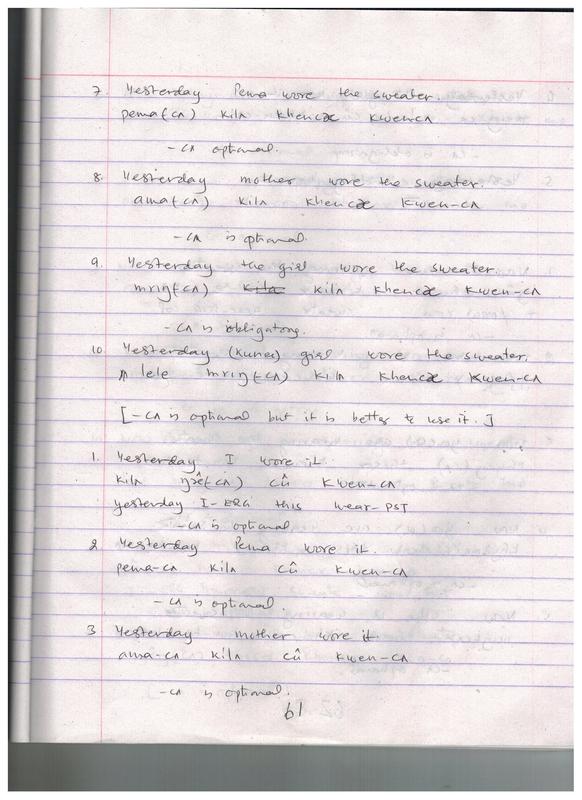 7. Yesterday Pema wore the sweater.
pema(cʌ) kilʌ khencæ kwencʌ
-cʌ optional.
8. Yesterday mother wore the sweater.
ama(cʌ) kilʌ khencæ kwen-cʌ
-cʌ is ptional.
9. Yesterday the girl wore the sweater.
mriŋ(cʌ) kilʌ khencæ kwen-cʌ
-cʌ is obligatory.
10. Yesterday (kunes) girl wore the sweater.
lele mriŋ(cʌ) kilʌ khencæ kwen-cʌ
[-cʌ is optional but it is better to use it.]
1. Yesterday I wore it.
kilʌ (cʌ) cû kwen-cʌ
yesterday I-ERG this wear-PST
-cʌ is optional
2 Yesterday Pema wore it.
pema-cʌ kilʌ cû kwen-cʌ
-cʌ is optional.
3 Yesterday mother wore it
ama-cʌ kilʌ cû kwen-cʌ
-cʌ is optional.
61